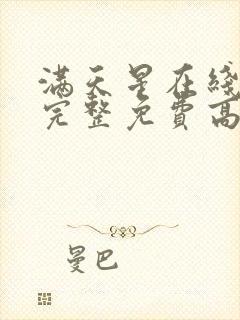 满天星在线
完整免费高
曼巴